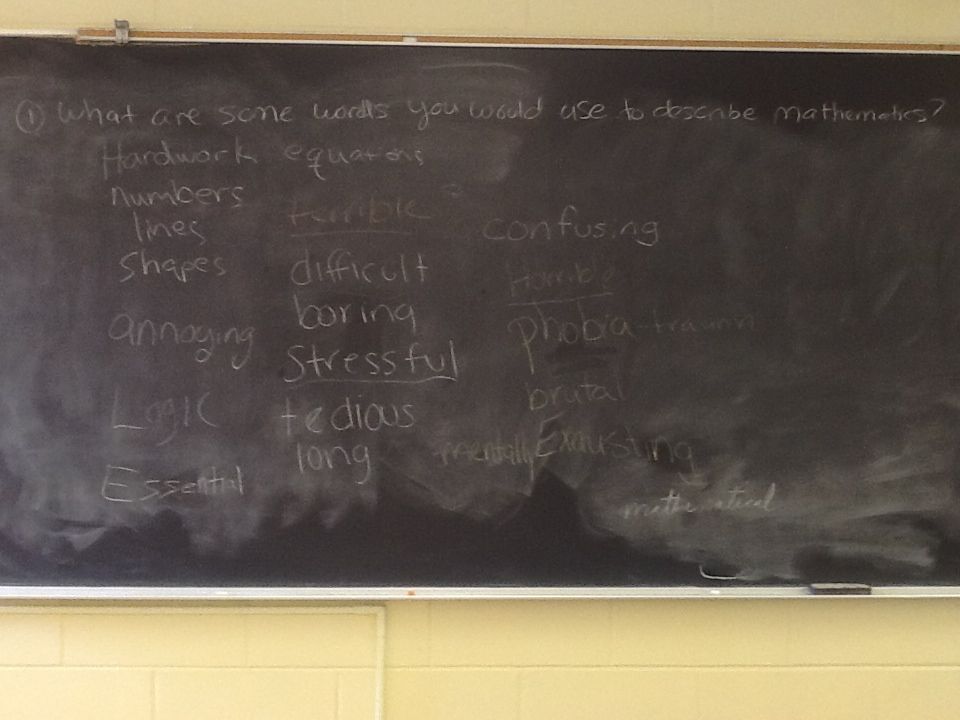 ① What are some words you would use to describe mathematics?
Hardwork
numbers
lines
shapes
annoying
Logic
Essential
equations
terrible
difficult
boring
Stressful
tedious
long
confusing
Horrible
phobia-traum
brutal
mentally Exausting
mathematical